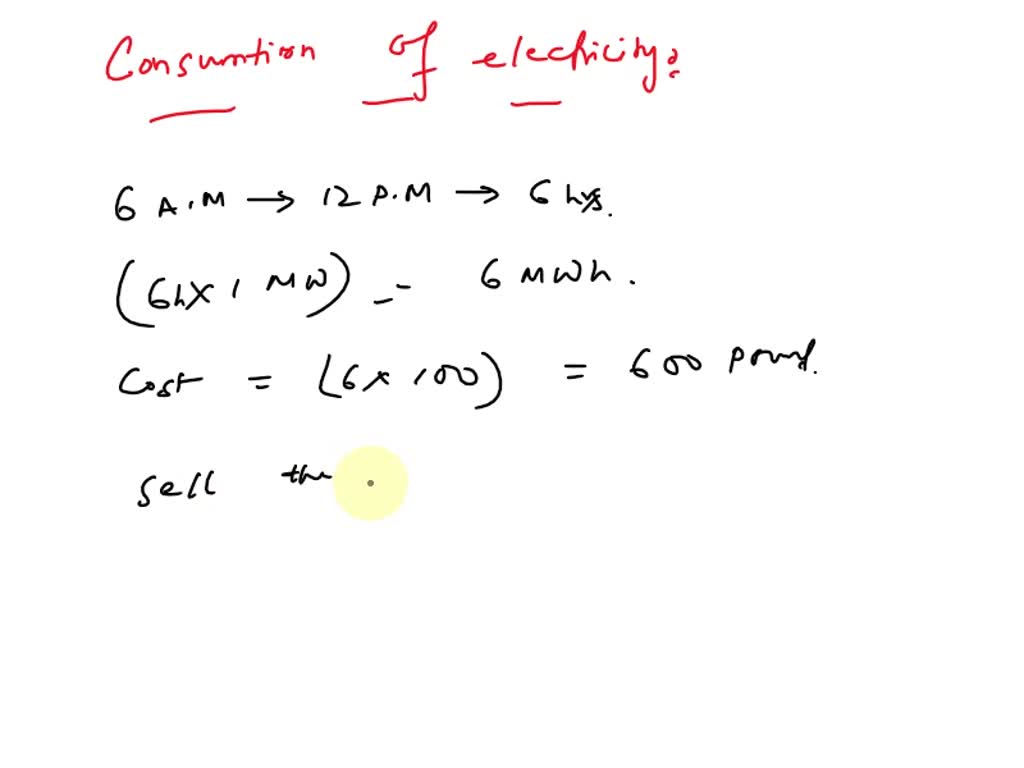 Consumtion of electricity:
6 A.M → 12 P.M → 6 hrs.
(6h x 1 MW) = 6 MWh.
Cost = (6 x 100) = 600 pound.
Sell the